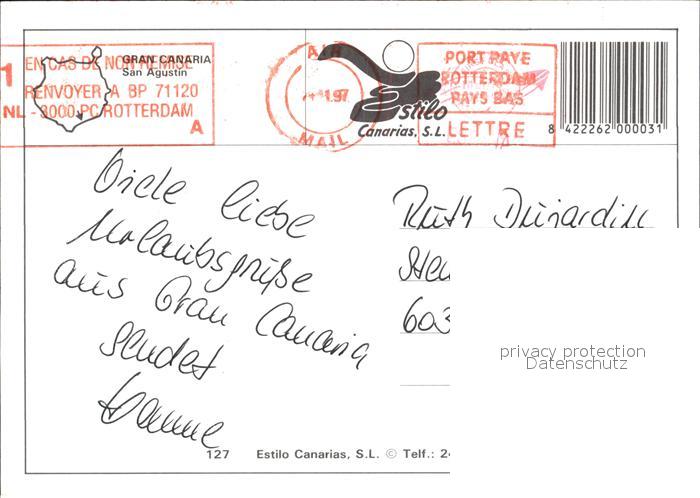 GRAN CANARIA
San Agustín
EN CAS DE NON REMISE
RENVOYER A BP 71120
NL - 3000 PC ROTTERDAM
1
A
AIR
MAIL
Estilo
Canarias, S.L.
PORT PAYE
ROTTERDAM
PAYS BAS
LETTRE
8 422262 000031
Viele liebe
Urlaubsgrüße
aus Gran Canaria
sendet
Ruth Dujardin
603
privacy protection
Datenschutz
127 Estilo Canarias, S.L. © Telf.: 2